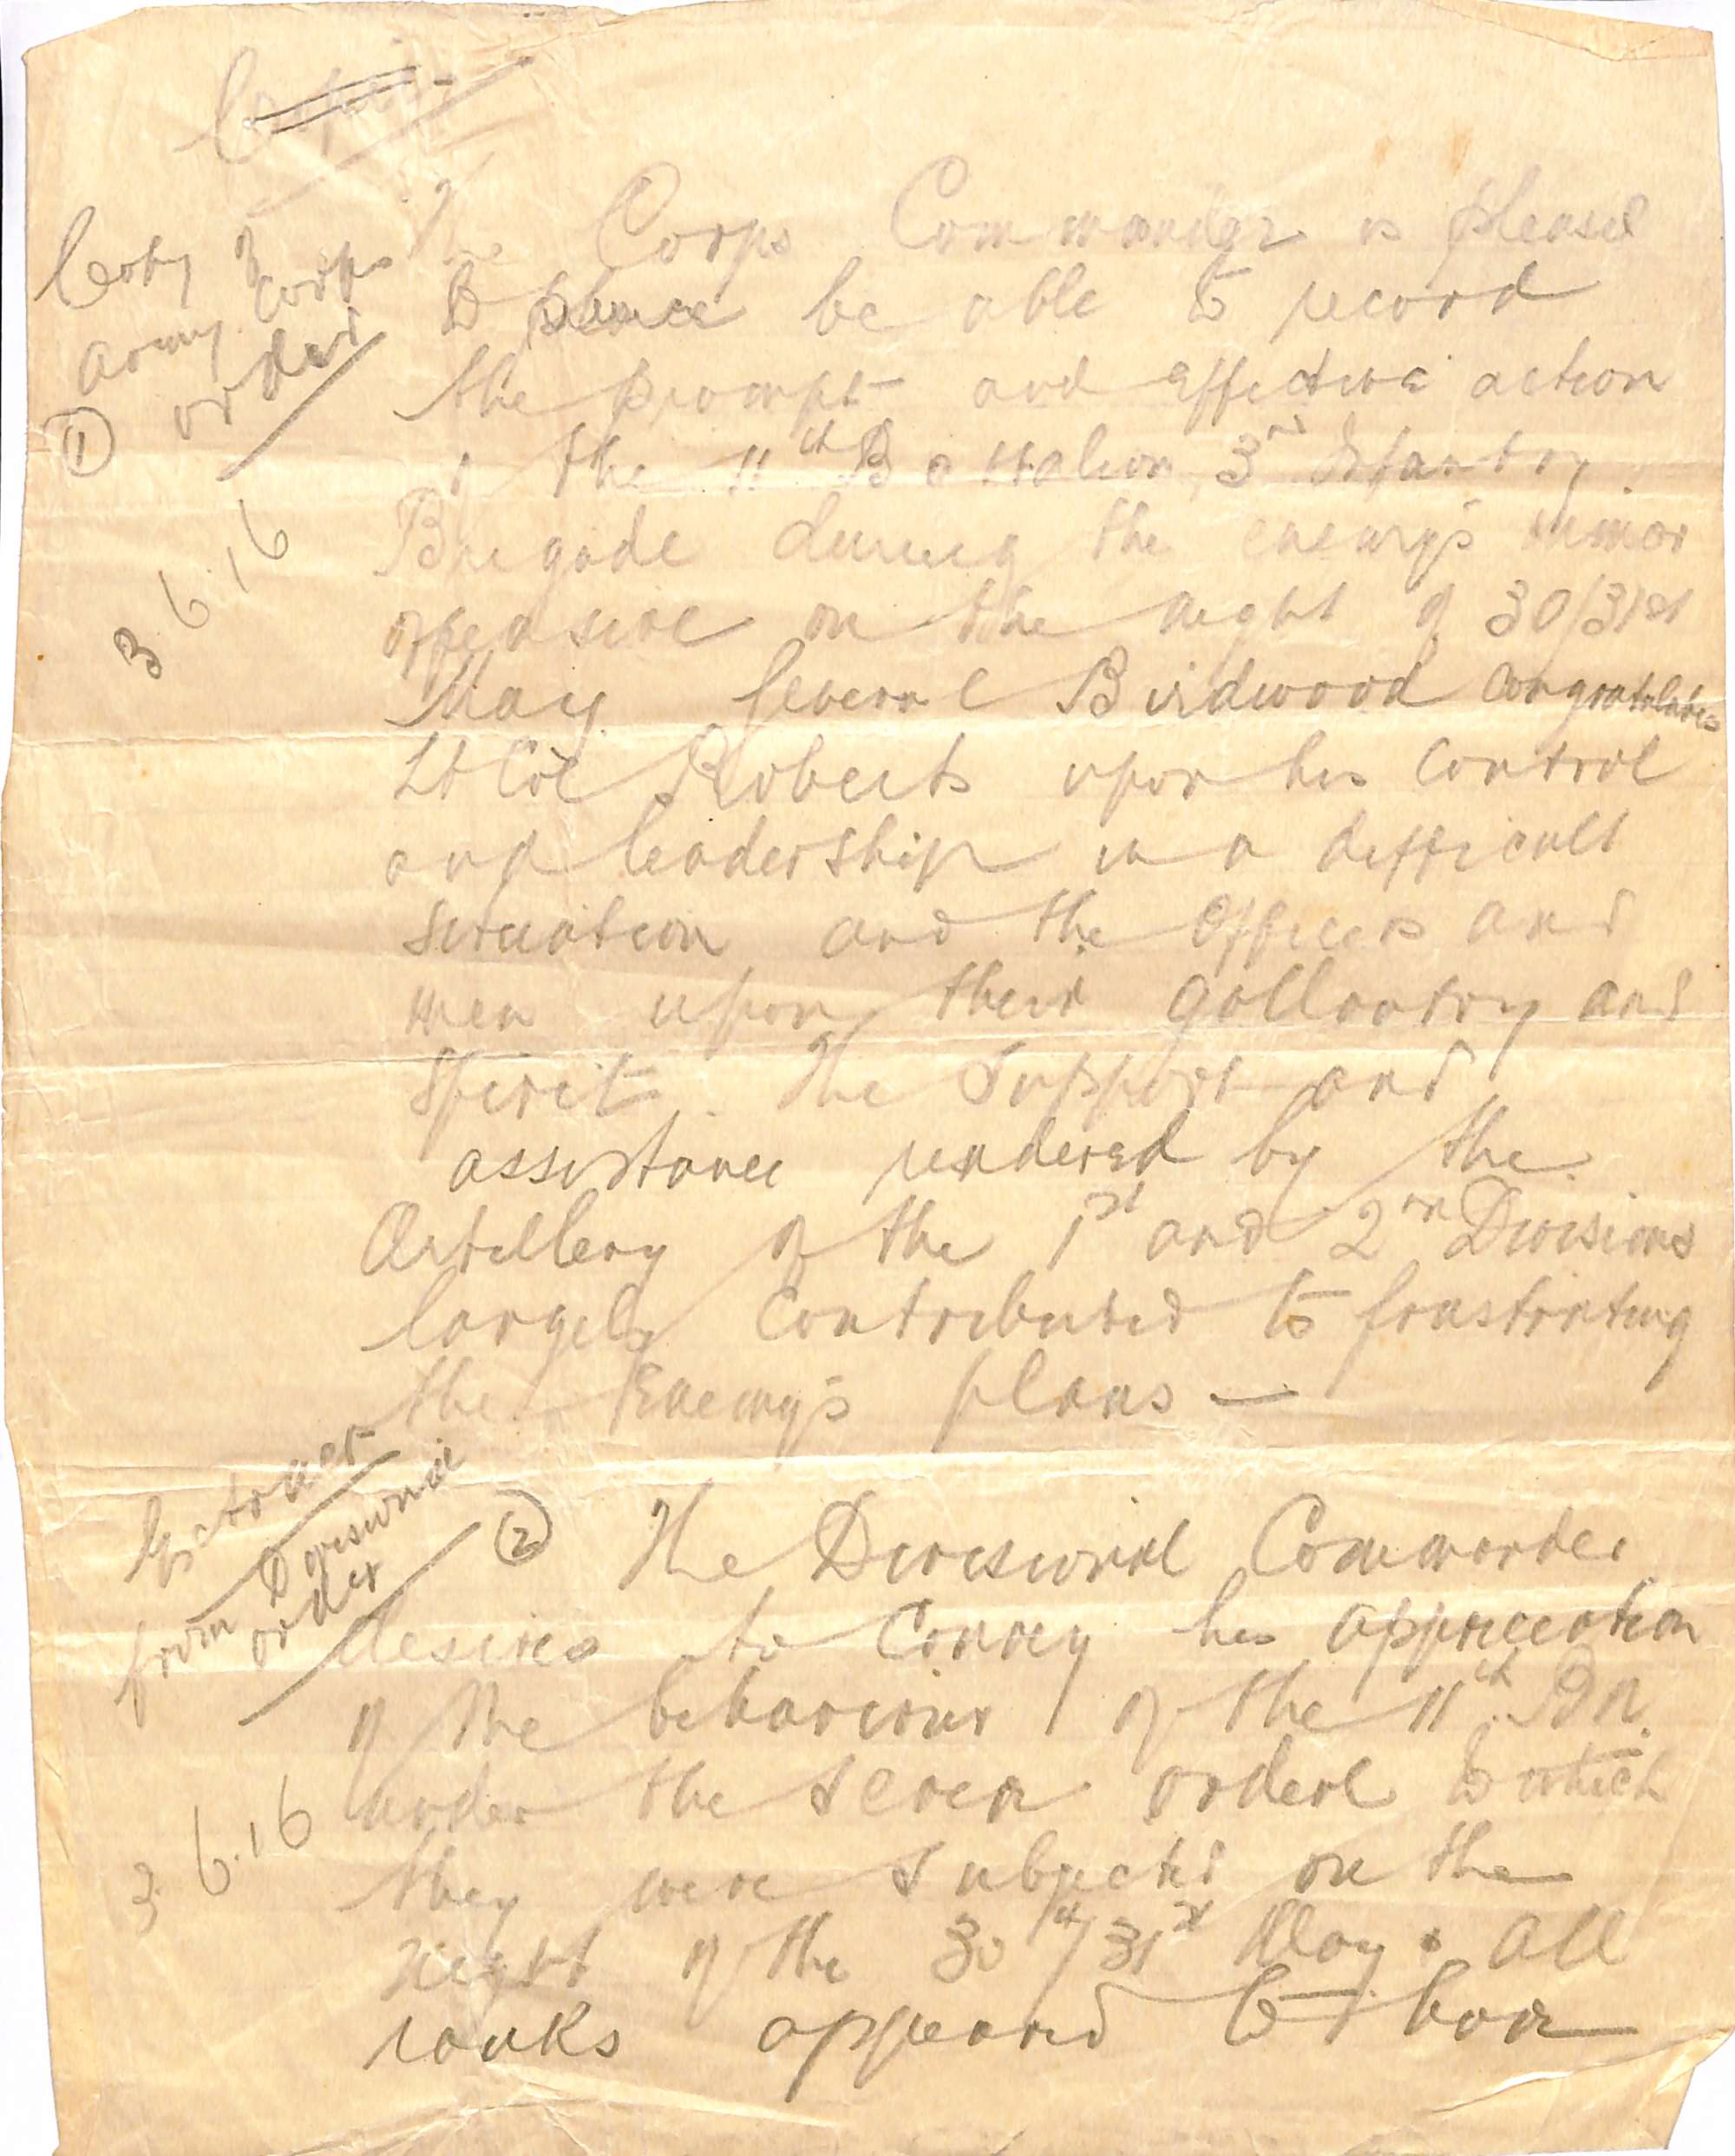 Copy of
army corps
order
①
3 6.16
The Corps Commander is pleased
to place be able to record
the prompt and effective action
of the 11th Battalion, 3rd Infantry
Brigade during the enemy's minor
offensive on the night of 30/31st
May. General Birdwood congratulates
Lt Col Roberts upon his control
and leadership in a difficult
situation and the officers and
men upon their gallantry and
spirit. The support and
assistance rendered by the
Artillery of the 1st and 2nd Divisions
largely contributed to frustrating
the Enemy's plans —
Extract
from Divisional
order
3 6.16
② The Divisional Commander
desires to convey his appreciation
of the behaviour of the 11th Bn.
under the severe ordeal to which
they were subjected on the
night of the 30th/31st May. All
ranks appeared to have